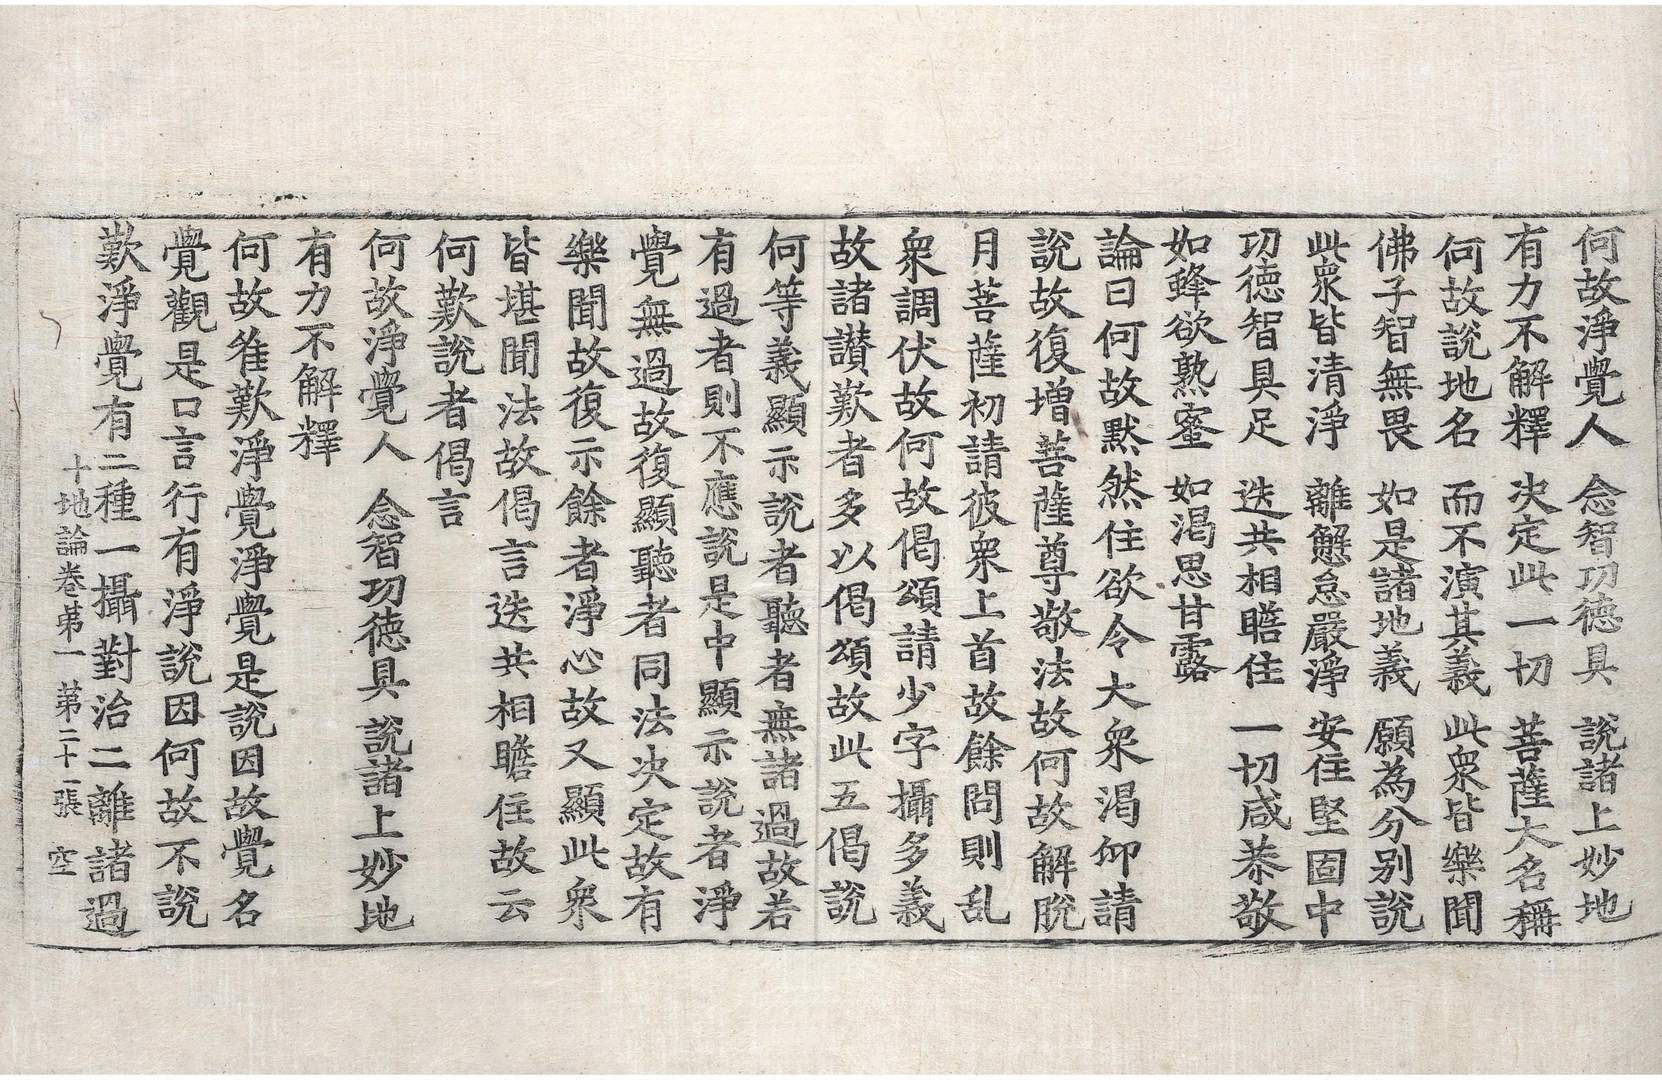 何故淨覺人　念智功德具　說諸上妙地
有力不解釋　决定此一切　菩薩大名稱
何故說地名　而不演其義　此衆皆樂聞
佛子智無畏　如是諸地義　願為分別說
此衆皆清淨　離懈怠嚴淨　安住堅固中
功德智具足　迭共相瞻住　一切咸恭敬
如蜂欲熟蜜　如渴思甘露
論曰何故默然住欲令大衆渴仰請
說故復增菩薩尊敬法故何故解脫
月菩薩初請彼衆上首故餘問則乱
衆調伏故何故偈頌請少字攝多義
故諸讃歎者多以偈頌故此五偈說
何等義顯示說者聽者無諸過故若
有過者則不應說是中顯示說者淨
覺無過故復顯聽者同法决定故有
樂聞故復示餘者淨心故又顯此衆
皆堪聞法故偈言迭共相瞻住故云
何歎說者偈言
何故淨覺人　念智功德具　說諸上妙地
有力不解釋
何故唯歎淨覺淨覺是說因故覺名
覺觀是口言行有淨說因何故不說
歎淨覺有二種一攝對治二離諸過
十地論卷苐一　苐二十一張　空